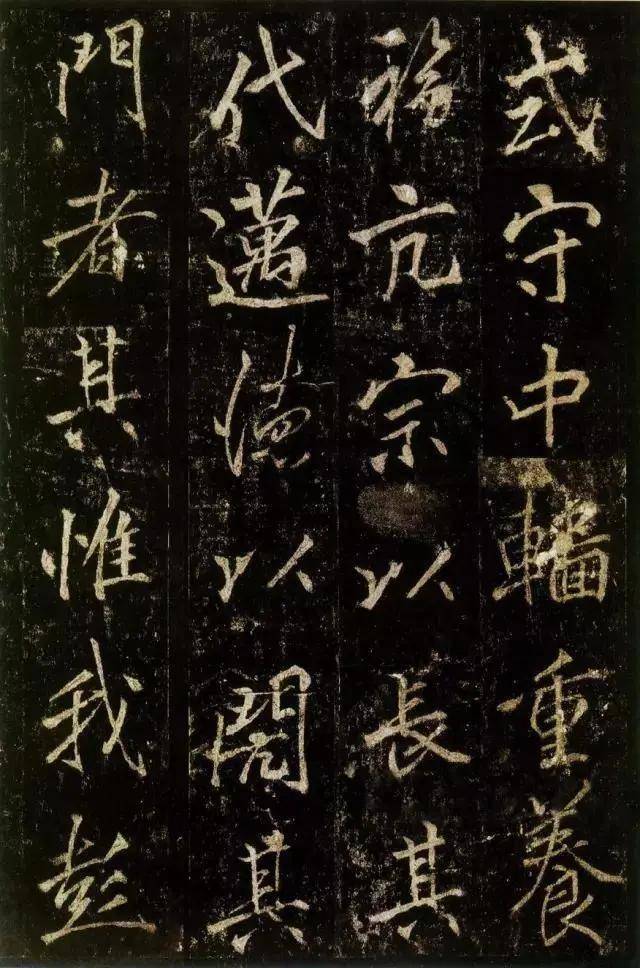 或守中轓重養
福亢宗以長其
代邁德以閌其
門者其惟我彭